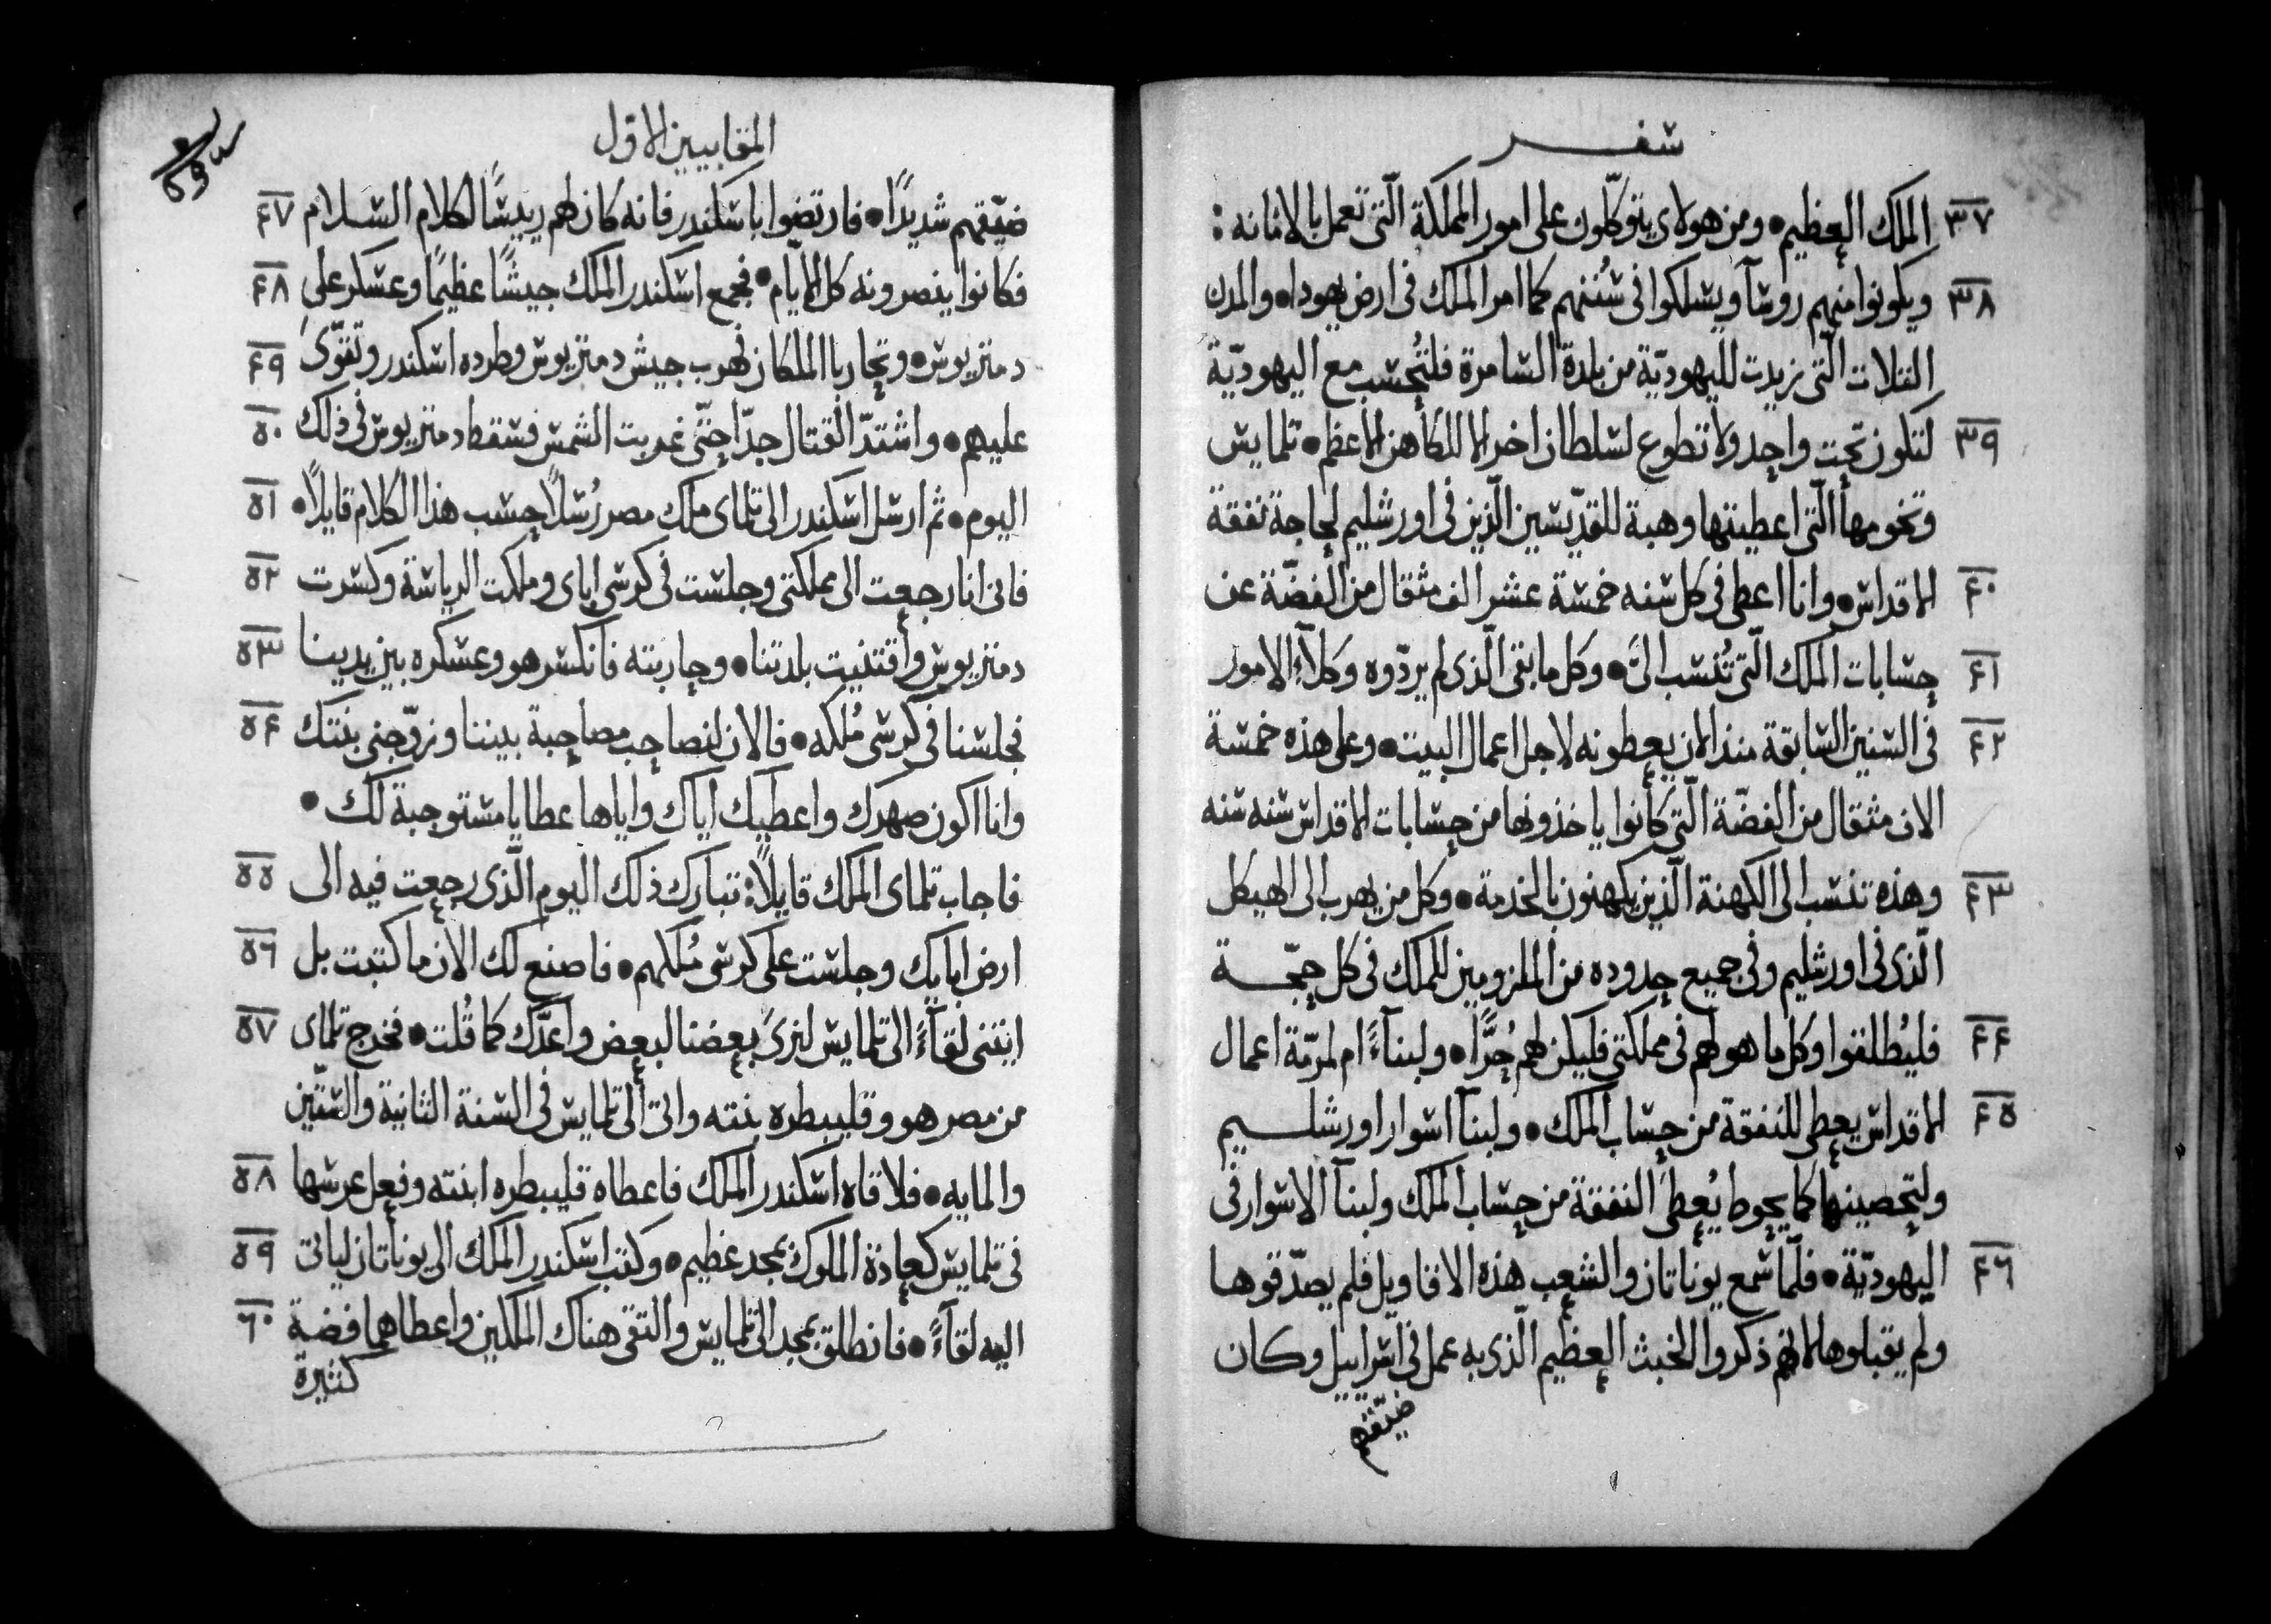 سفر
٣٧ الملك العظيم • ومن هولاى يتوكلون على امور المملكة الّتى تعمل بالامانه :
٣٨ ويكونوا منهم روسآ ويسلكوا فى سُننهم كما امر الملك فى ارض يهودا • والمدن
الثلات الّتى زيدت لليهوديّة من بلدة السامرة فلتُحسب مع اليهوديّة
٣٩ لتكون تحت واحد ولا تطوع لسلطان اخر الا للكاهن الاعظم • تلمايس
وتخومها الّتى اعطيتها وهبة للقدّيسين الّذين فى اورشليم لحاجة نفقة
٤٠ الاقداس • وانا اعطى فى كل سنه خمسة عشر الف مثقال من الفضّة عن
٤١ حسابات الملك الّتى تُنسب الىَّ • وكل ما بقى الّذى لم يردّوه وكلآء الامور
٤٢ فى السنين السابقة منذ الان يعطونه لاجل اعمال البيت • وعلى هذه خمسة
الاف مثقال من الفضّة الّتى كانوا ياخذونها من حسابات الاقداس سنه سنه
٤٣ وهذه تنسب الى الكهنة الّذين يكهنون بالخدمة • وكل من يهرب الى الهيكل
الّذى فى اورشليم وفى جميع حدوده من الملزومين للملك فى كل حجّة
٤٤ فليُطلقوا وكل ما هو لهم فى مملكتى فليكن لهم حُرًّا • ولبنآءً ام لمرمّة اعمال
٤٥ الاقداس يعطى للنفقة من حساب الملك • ولبنآ اسوار اورشليم
ولتحصينها كما يحوط يُعطىَ النفقة من حساب الملك ولبنآ الاسوار فى
٤٦ اليهوديّة • فلمّا سمع يوناتان والشعب هذه الاقاويل فلم يصدّقوها
ولم يقبلوها لانهم ذكروا الخبث العظيم الّذى به عمل فى اسراييل وكان
ضيّقهم
المقابيين الاوّل
ضيّقهم شديدًا • فارتضوا باسكندر فانه كان لهم رييسًا لكلام السلام ٤٧
فكانوا ينصرونه كل الايّام • فجمع اسكندر الملك جيشًا عظيمًا وعسكر على ٤٨
دمتريوس • وتحاربا الملكان فهرب جيش دمتريوس وطرده اسكندر وتقوّى ٤٩
عليهم • واشتدّ القتال جدّا حتّى غربت الشمس فسقط دمتريوس فى ذلك ٥٠
اليوم • ثم ارسل اسكندر الى تلماى ملك مصر رُسلاً حسب هذا الكلام قايلاً • ٥١
فانى انا رجعت الى مملكتى وجلست فى كرسى اباى وملكت الرياسة وكسرت ٥٢
دمتريوس واقتنيت بلدتنا • وحاربته فانكسر هو وعسكره بين يدينا ٥٣
فجلسنا فى كرسى مُلكه • فالان لنصاحب مصاحبة بيننا وزوّجنى بنتك ٥٤
وانا اكون صهرك واعطيك اياك واياها عطايا مستوجبة لك •
فاجاب تلماى الملك قايلاً : تبارك ذلك اليوم الّذى رجعت فيه الى ٥٥
ارض ابايك وجلست على كرسى مُلكهم • فاصنع لك الان ما كتبت بل ٥٦
ايتنى لقآءً الى تلمايس لنرىَ بعضنا لبعض واعدّك كما قُلت • فخرج تلماى ٥٧
من مصر هو وقليبطره بنته واتى الى تلمايس فى السنة الثانية والستّين
والمايه • فلاقاه اسكندر الملك فاعطاه قليبطره ابنته وفعل عرسها ٥٨
فى تلمايس كعادة الملوك بمجد عظيم • وكتب اسكندر الملك الى يوناتان لياتى ٥٩
اليه لقآءً • فانطلق بمجد الى تلمايس والتقى هناك الملكين واعطاهما فضة ٦٠
كثيرة